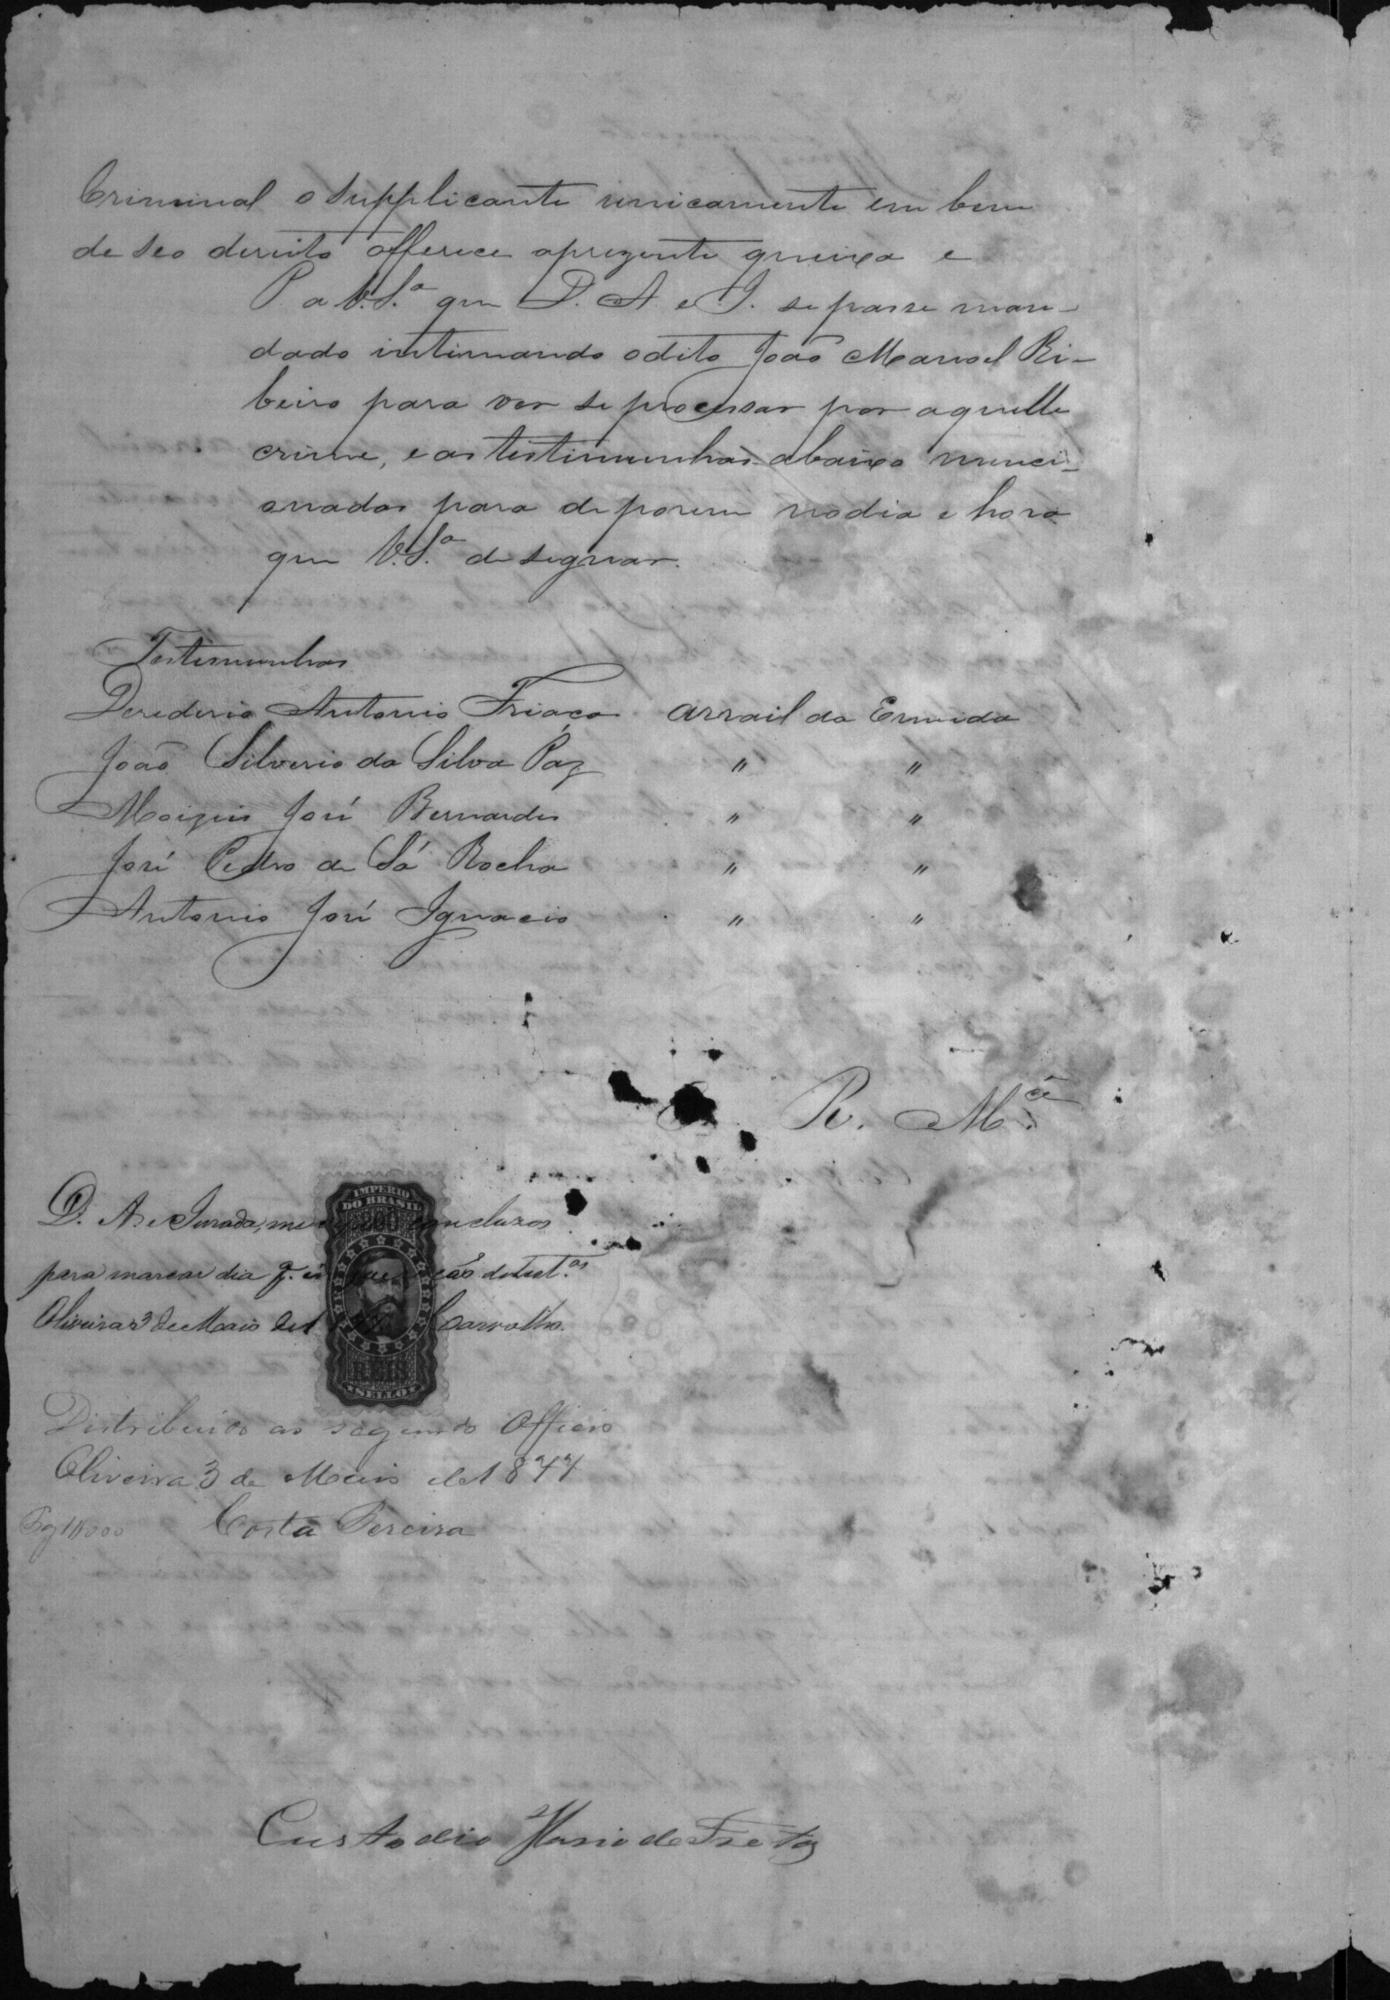 Criminal o supplicante unicamente em bem
de seo direito offerece aprezente queixa e
P. a V.S.ª que D. A. e J. se passe man-
dado intimando o dito João Manoel Ri-
beiro para ver se processar por aquelle
crime, e as testimunhas abaixo menci-
onadas para deporem no dia e hora
que V.S.ª designar.
Testimunhas
Antonio Friaça arraial da Ermida
João Silverio da Silva Paz " "
Moizeis José Bernardes " "
José Pedro de Sá Rocha " "
Antonio José Ignacio " "
R. M.ce
IMPERIO
DO BRASIL
D. A. e Jurada, me conclusos
para marcar dia p.ª
Oliveira 3 de Maio de 1877 Carvalho.
REIS
SELLO
Distribuido ao segundo Officio
Oliveira 3 de Maio de 1877
Pg 1$000 Costa Pereira
Custodio de Freitas